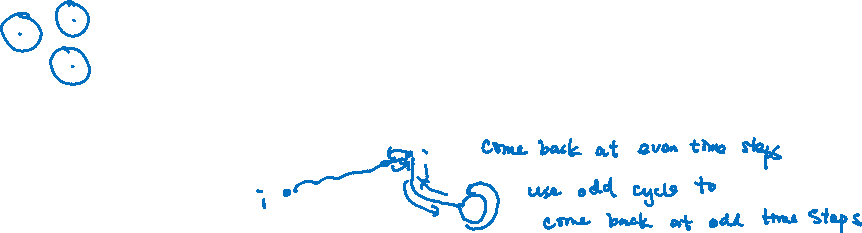 j
come back at even time steps
i
use odd cycle to
come back at odd time steps